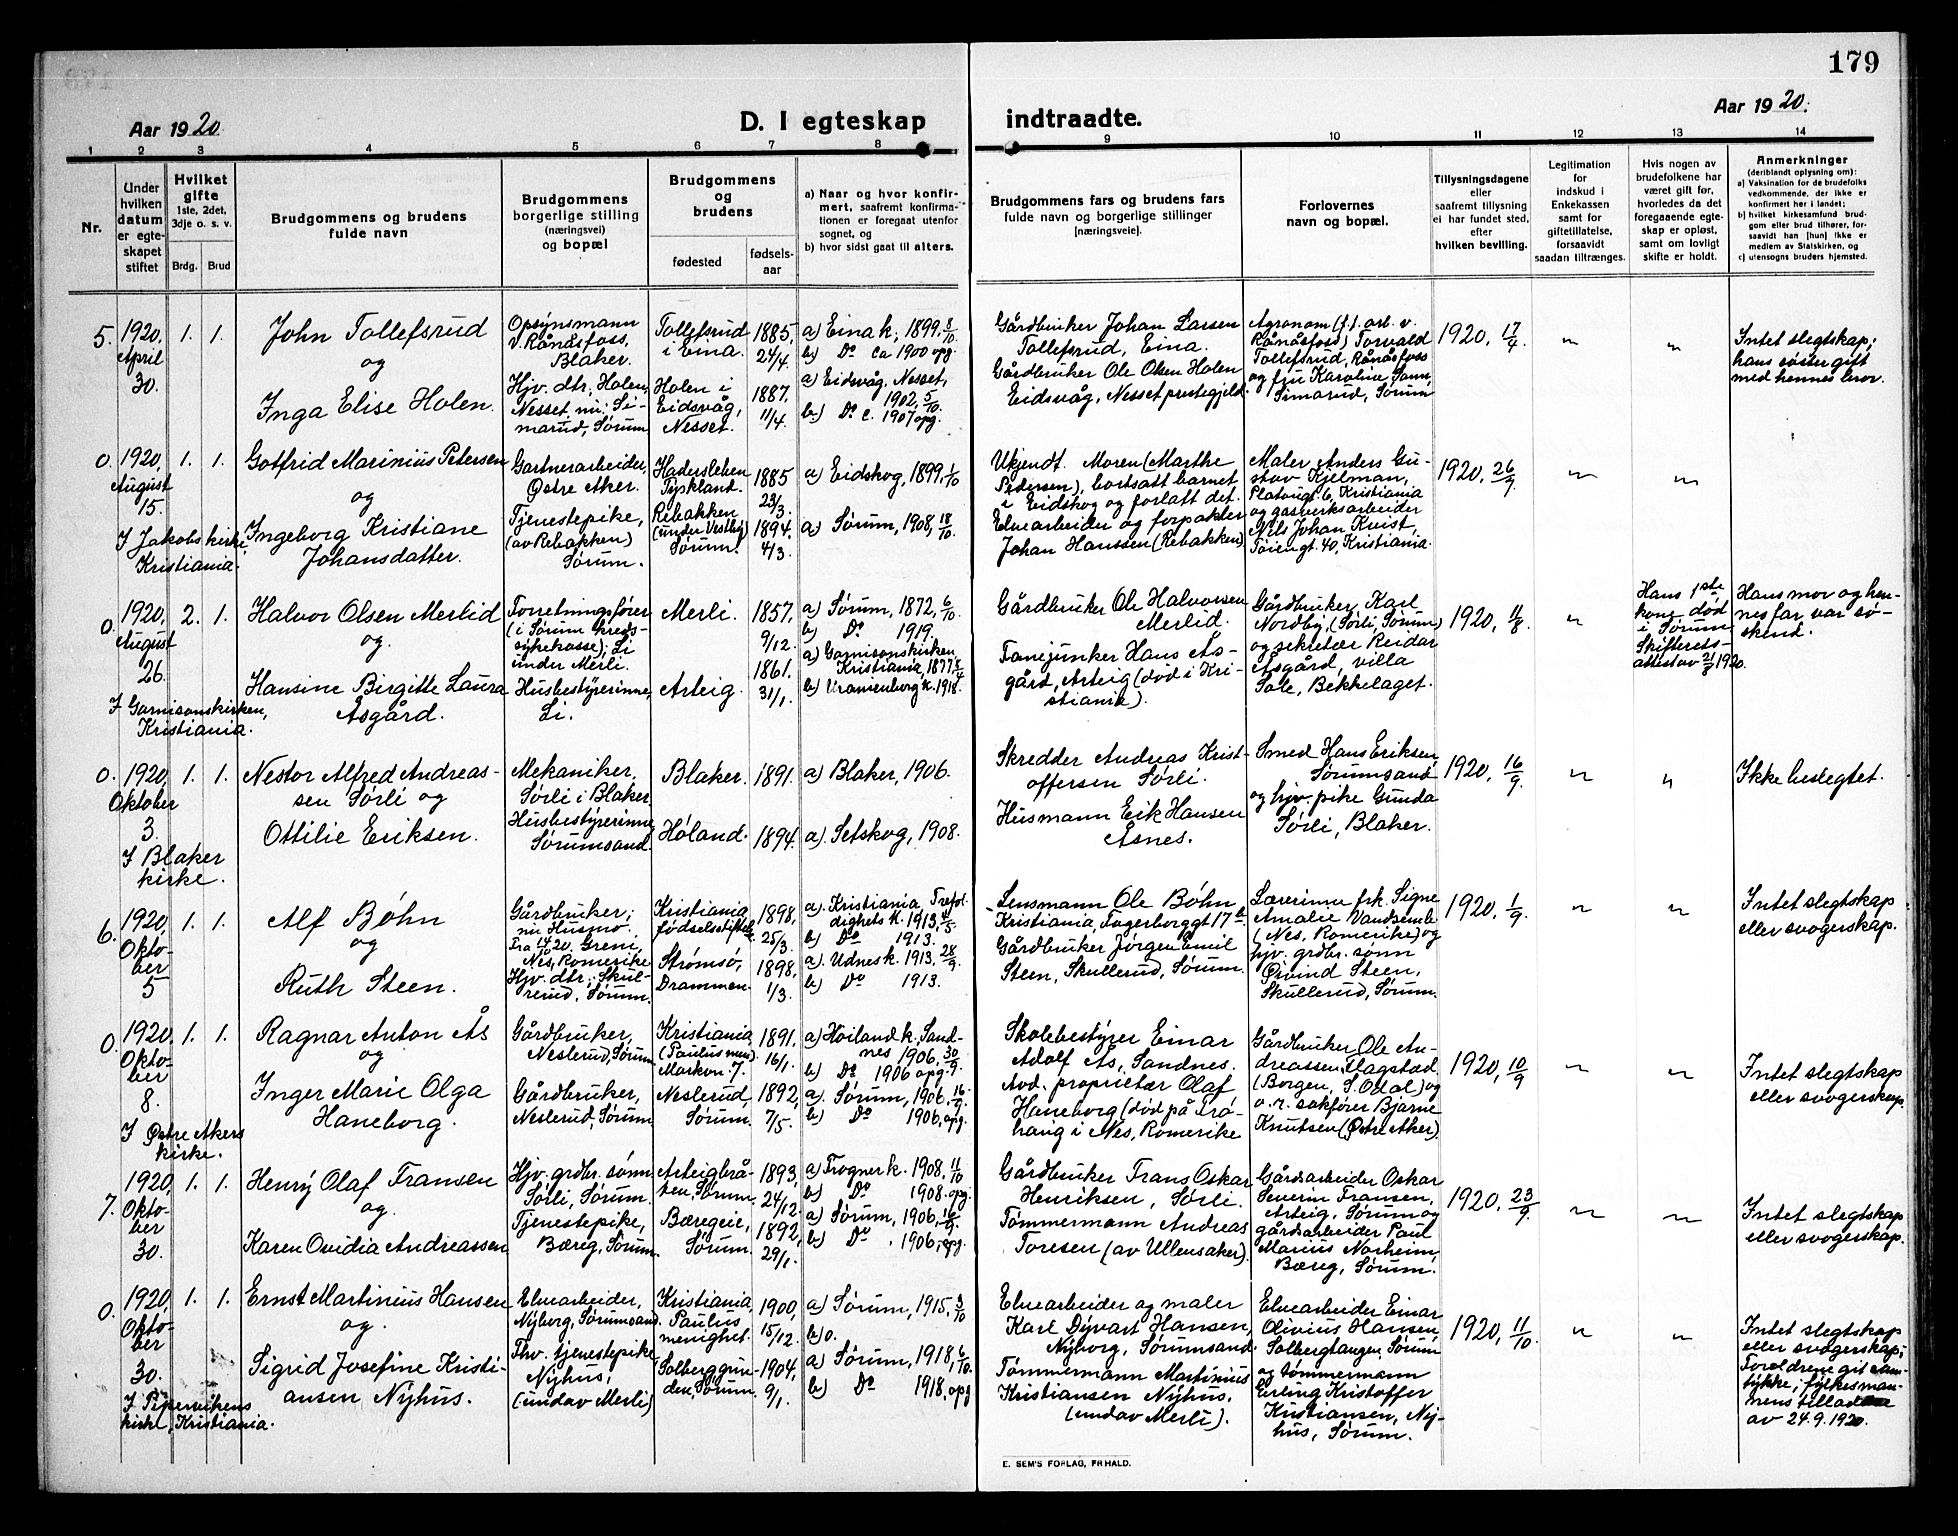 179
Aar 1920.
D. I egteskap
indtraadte.
Aar 1920.
1 2 3 4 5 6 7 8 9 10 11 12 13 14
Nr.
Under hvilken datum er egteskapet stiftet
Hvilket gifte 1ste, 2det, 3dje o. s. v.
Brdg. Brud
Brudgommens og brudens fulde navn
Brudgommens og brudens borgerlige stilling (næringsvei) og bopæl
Brudgommens og brudens
fødested
fødselsaar
a) Naar og hvor konfirmert, saafremt konfirmationen er foregaat utenfor sognet, og
b) hvor sidst gaat til alters.
Brudgommens fars og brudens fars fulde navn og borgerlige stillinger [næringsveie].
Forlovernes navn og bopæl.
Tillysningsdagene eller saafremt tillysning ei har fundet sted, efter hvilken bevilling.
Legitimation for indskud i Enkekassen samt for giftetillatelse, forsaavidt saadan tiltrænges.
Hvis nogen av brudefolkene har været gift før, hvorledes da det foregaaende egteskap er opløst, samt om lovligt skifte er holdt.
Anmerkninger (deriblandt oplysning om):
a) Vaksination for de brudefolks vedkommende, der ikke er konfirmert her i landet;
b) hvilket kirkesamfund brudgom eller brud tilhører, forsaavidt han [hun] ikke er medlem av Statskirken, og
c) utensogns bruders hjemsted.
5. 1920, April 30. 1. 1.
John Tollefsrud
og
Inga Elise Holen.
Opsynsmann
v. Rånåsfoss,
Blaker.
Hjv. dtr., Holen,
Nesset, nu: Si-
marud, Sørum.
Tollefsrud
i Eina.
Holen i
Eidsvåg,
Nesset.
1885, 24/4.
1887, 11/4.
a) Eina k., 1899, 8/10
b) Do ca 1900 opg.
a) Eidsvåg, Nesset,
1902, 5/10.
b) Do c. 1907 opg.
Gårdbruker Johan Larsen
Tollefsrud, Eina.
Gårdbruker Ole Olsen Holen
Eidsvåg, Nesset prestegjeld.
Agronom (f.t. arb. v.
Rånåsfoss) Torvald
Tollefsrud, Rånåsfoss
og fru Karoline
Simarud, Sørum
1920, 17/4
"
"
Intet slegtskap;
hans søster gift
med hennes bror.
0. 1920, August 15. 1. 1.
I Jakobs kirke
Kristiania.
Gotfrid Marinius Petersen
og
Ingeborg Kristiane
Johansdatter.
Gartnerarbeider,
Østre Aker.
Tjenestepike,
(av Rebakken)
Sørum.
Hadersleben
Tyskland.
Rebakken
(under Vestby)
Sørum.
1885 23/3.
1894. 4/3.
a) Eidskog, 1899, 1/10
a) Sørum, 1908, 18/10
Ukjendt. Moren (Marthe
Pedersen), bortsatt barnet
i Eidskog og forlatt det.
Elvearbeider og forpakter
Johan Hanssen (Rebakken)
Maler Anders Gu-
stav Kjelman,
Platougt. 6, Kristiania
og gasverksarbeider
Nils Johan Kvist,
Tøiengt. 40, Kristiania.
1920, 26/7
"
"
0. 1920, August 26. 2. 1.
I Garnisonskirken,
Kristiania.
Halvor Olsen Merlid
og.
Hansine Birgitte Laura
Åsgård.
Forretningsfører
(i Sørum kreds-
sykekasse); Li
under Merli.
Husbestyrerinne,
Li.
Merli.
Arteig.
1857, 9/12.
1861. 31/1.
a) Sørum, 1872, 6/10
b) Do 1919.
a) Garnisonskirken
Kristiania, 1877
b) Uranienborg k. 1918.
Gårdbruker Ole Halvorsen
Merlid.
Fanejunker Hans Ås-
gård, Arteig (død i Kri-
stiania).
Gårdbruker Karl
Nordby, (Sørli, Sørum)
og sekretær Reidar
Åsgård, villa
Sole, Bekkelaget.
1920, 11/8
"
Hans 1ste
kone død
i Sørum
Skifterets-
attest av 21/7 1920.
Hans mor og hen-
nes far var sø-
skend.
0. 1920, Oktober 3. 1. 1.
I Blaker
kirke.
Nestor Alfred Andreas-
sen Sørli og
Ottilie Eriksen.
Mekaniker,
Sørli i Blaker,
Husbestyrerinne
Sørumsand.
Blaker.
Høland.
1891.
1894.
a) Blaker, 1906.
a). Setskog, 1908.
Skredder Andreas Krist-
offersen Sørli.
Husmann Erik Hansen
Åsnes.
Smed Hans Eriksen,
Sørumsand
og hjv. pike Gunda
Sørli, Blaker.
1920, 16/9
"
"
Ikke beslegtet.
6. 1920, Oktober 5 1. 1.
Alf Bøhn
og
Ruth Steen.
Gårdbruker;
nu Husmo
Fra 14/10 20. Greni,
Nes, Romerike
Hjv. dtr., Skul-
lerud, Sørum.
Kristiania
fødselsstiftelse.
Strømsø,
Drammen.
1898, 25/3.
1898, 1/3.
a). Kristiania Trefol-
dighets k. 1913,
b) Do 1913.
a). Udnes k. 1913, 28/9.
b) Do 1913.
Lensmann Ole Bøhn
Kristiania, Fagerborggt 17b
Gårdbruker Jørgen Emil
Steen, Skullerud, Sørum.
Lærerinne frk. Signe
Amalie Vandsemb
(Nes, Romerike) og
hjv. grdbr. sønn
Øivind Steen,
Skullerud, Sørum.
1920, 1/9
"
"
Intet slegtskap
eller svogerskap.
0. 1920, Oktober 8. 1. 1.
I Østre Akers
kirke.
Ragnar Anton Ås
og
Inger Marie Olga
Haneborg.
Gårdbruker,
Neslerud, Sørum
Gårdbruker,
Neslerud, Sørum.
Kristiania
(Paulus men).
Markvn. 7.
Neslerud
Sørum.
1891. 16/1.
1892, 7/5.
a) Høiland k. Sand-
nes 1906, 30/9.
b) Do 1906 opg.
a). Sørum, 1906, 16/9.
b) Do 1906, opg.
Skolebestyrer Einar
Adolf Ås, Sandnes.
Avd. proprietær Olaf
Haneborg (død på Frø-
haug i Nes, Romerike
Gårdbruker Ole An-
dreassen Flagstad
(Borgen, S. Odal) og
o.r. sakfører Bjarne
Knutsen (Østre Aker).
1920, 10/9
"
"
Intet slegtskap
eller svogerskap.
7. 1920, Oktober 30. 1. 1.
Henry Olaf Fransen
og.
Karen Ovidia Andreassen
Hjv. grdbr. sønn
Sørli, Sørum.
Tjenestepike,
Bæreg, Sørum.
Arteigbrå-
ten, Sørum.
Bæregeie,
Sørum.
1893, 24/12.
1892, 29/1.
a) Frogner k. 1908, 11/10
b) Do 1908. opg.
a) Sørum, 1906, 16/9.
b) Do. 1906, opg.
Gårdbruker Frans Oskar
Henriksen, Sørli.
Tømmermann Andreas
Toresen (av Ullensaker).
Gårdsarbeider Oskar
Severin Fransen,
Arteig, Sørum og
gårdsarbeider Paul
Marius Norheim,
Bæreg, Sørum.
1920, 23/9
"
"
Intet slegtskap
eller svogerskap.
0. 1920, Oktober 30. 1. 1.
I Pipervikens
kirke, Kristiania.
Ernst Martinius Hansen
og.
Sigrid Josefine Kristi-
ansen Nyhus.
Elvearbeider,
Nyborg, Sørumsand.
Fhv. tjenestepike
Nyhus,
(undav Merli)
Kristiania
Paulus
menighet.
Solberggrun-
den, Sørum.
1900, 15/12.
1904, 9/1.
a) Sørum, 1915, 3/10
b) o.
a) Sørum, 1918, 6/10.
b) Do 1918, opg
Elvearbeider og maler
Karl Dyvart Hansen,
Nyborg, Sørumsand.
Tømmermann Martinius
Kristiansen Nyhus,
(undav Merli).
Elvearbeider Einar
Olivius Hansen,
Solbergtangen, Sørum
og tømmermann
Erling Kristoffer
Kristiansen, Ny-
hus, Sørum.
1920, 11/10
"
"
Intet slegtskap
eller svogerskap;
Foreldrene git sam-
tykke; fylkesman-
nens tilladelse
av 24.9.1920.
E. SEM'S FORLAG, FR.HALD.